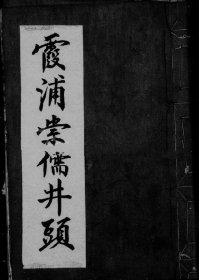 霞浦崇儒井頭